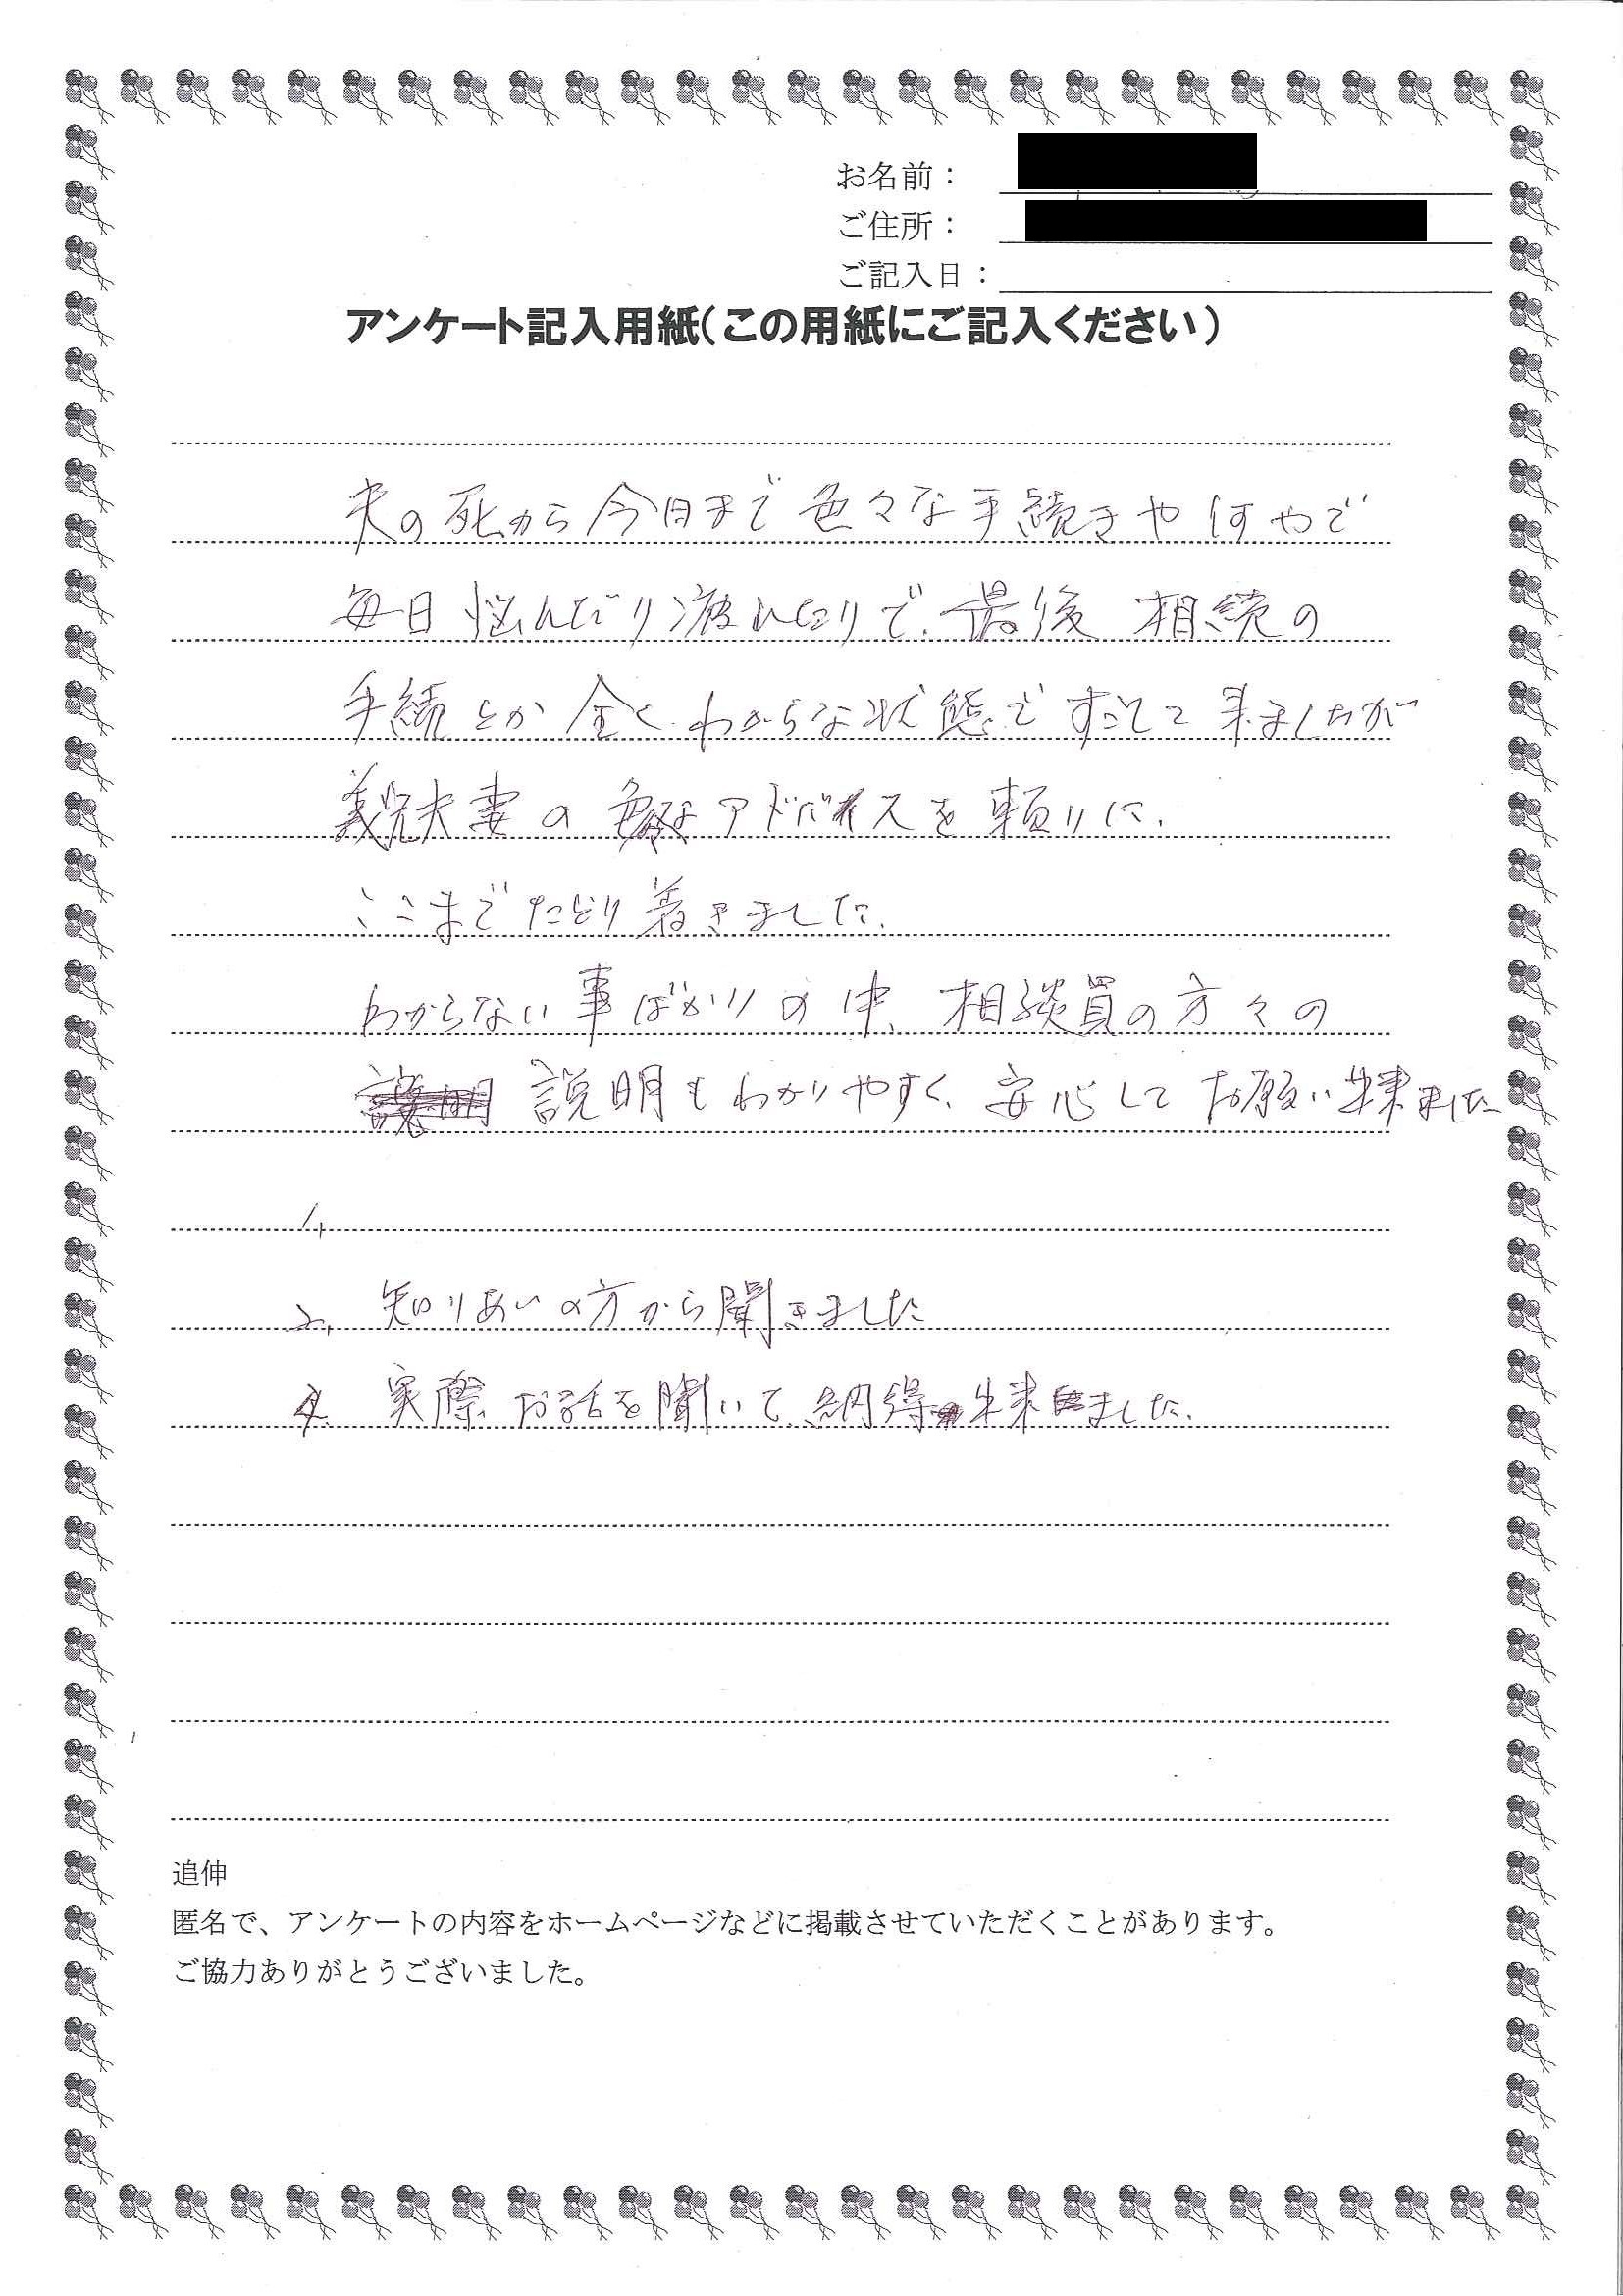 お名前：
ご住所：
ご記入日：
アンケート記入用紙（この用紙にご記入ください）
夫の死から今日まで色々な手続きや何やで
毎日悩んだり疲れたりで、最後 相続の
手続とか全くわからな状態ですごして来ましたが
義兄夫妻の アドバイスを頼りに、
ここまでたどり着きました。
わからない事ばかりの中、相談員の方々の
説明もわかりやすく、安心してお願い出来ました
1,
2, 知りあいの方から聞きました
実際お話を聞いて納得出来ました。
追伸
匿名で、アンケートの内容をホームページなどに掲載させていただくことがあります。
ご協力ありがとうございました。